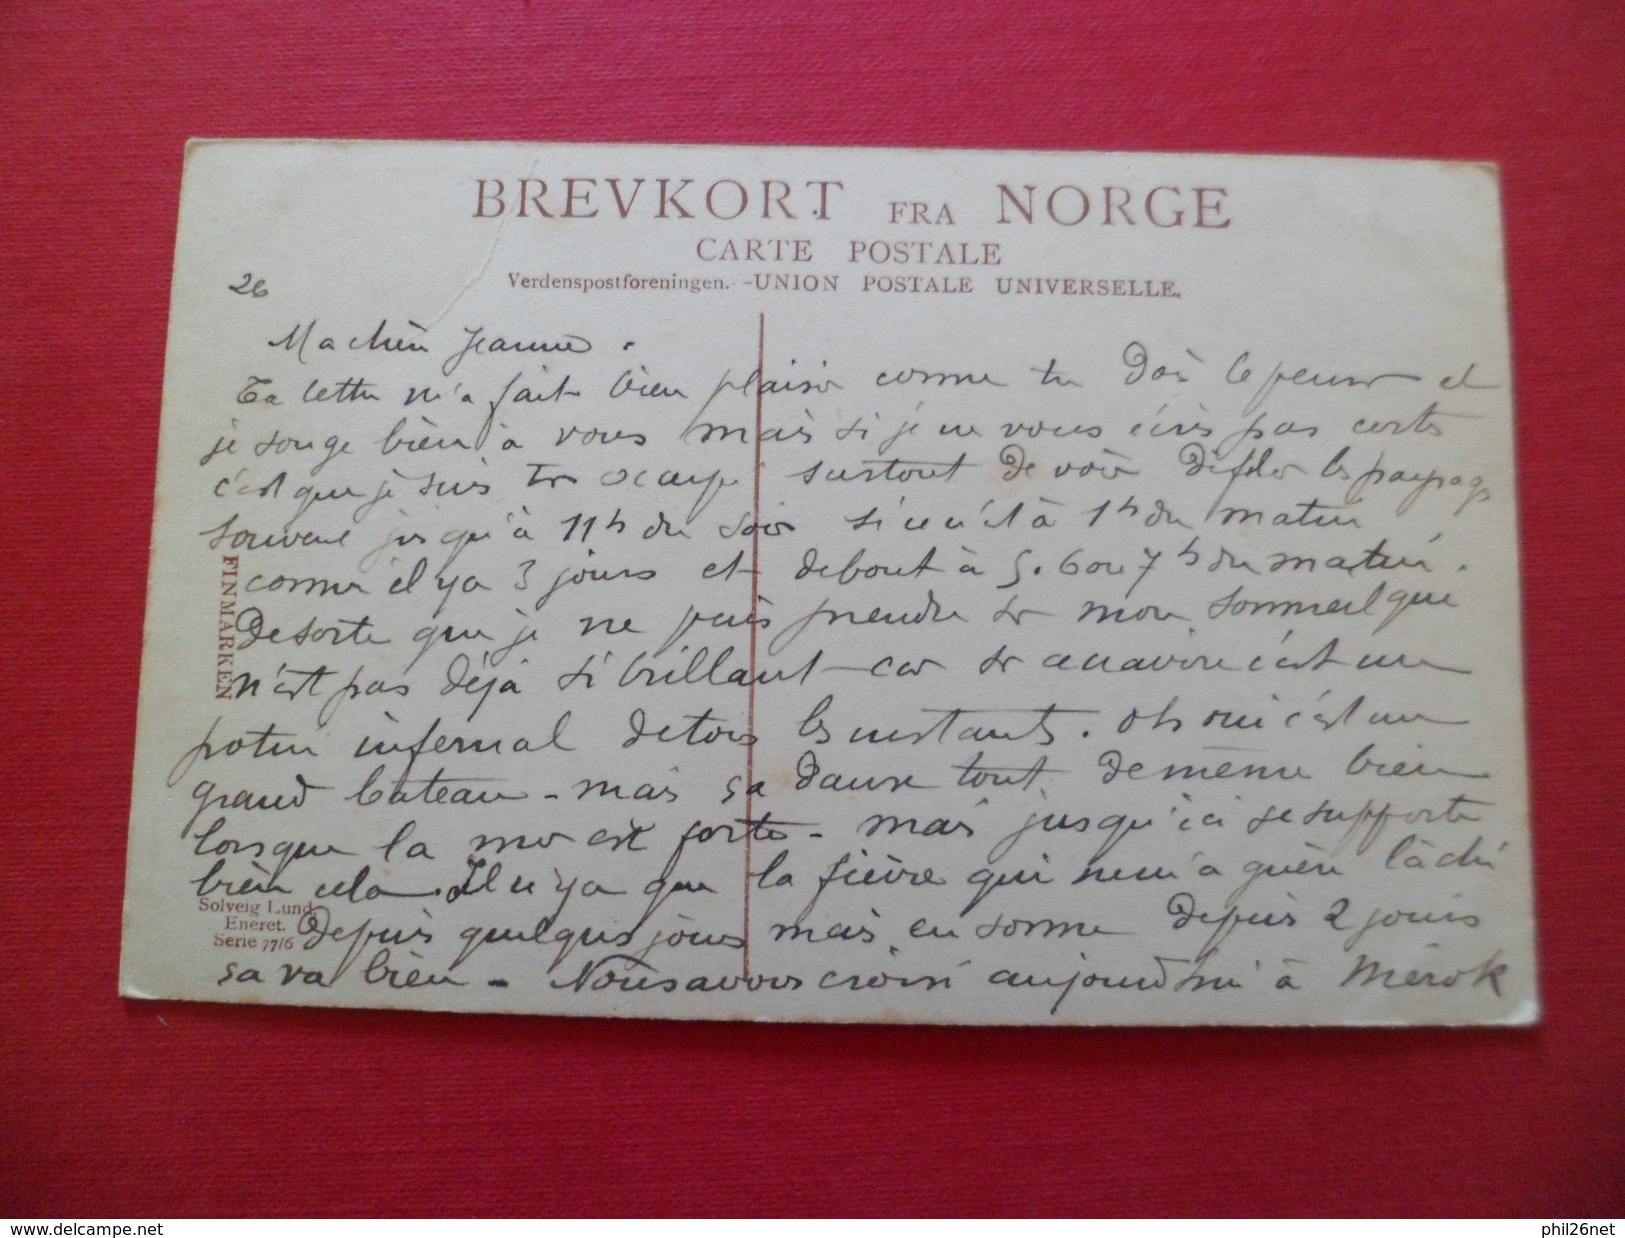 BREVKORT FRA NORGE
CARTE POSTALE
Verdenspostforeningen. - UNION POSTALE UNIVERSELLE.
26
Ma chère Jeanne.
Ta lettre m'a fait bien plaisir comme tu dois le penser et
je songe bien à vous mais si je ne vous écris pas certes
c'est que je suis très occupé surtout de voir défiler les paysages
souvent jusqu'à 11h du soir si ce n'est à 1h du matin
comme il y a 3 jours et debout à 5. 6 ou 7h du matin.
De sorte que je ne puis prendre sur mon sommeil que
n'est pas déjà si brillant car c'est un
potin infernal de tous les instants. Oh oui c'est un
grand bateau - mais ça danse tout de même bien
lorsque la mer est forte - mais jusqu'ici je supporte
bien cela. Il n'y a que la fièvre qui ne m'a guère lâché
depuis quelques jours mais en somme depuis 2 jours
ça va bien - Nous avons croisé aujourd'hui à Mérok
FINMARKEN
Solveig Lund.
Eneret.
Serie 77/6
delcampe.net
phil26net